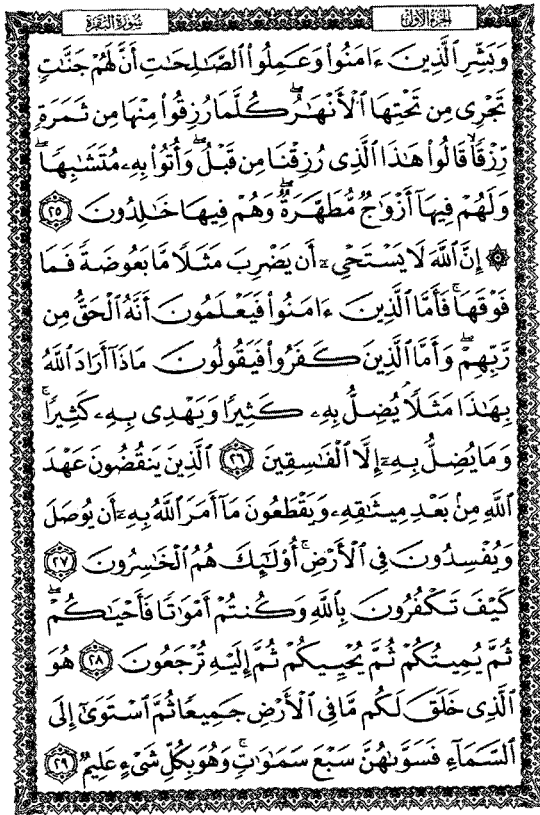 الجزء الأول
سورة البقرة
وَبَشِّرِ ٱلَّذِينَ ءَامَنُوا۟ وَعَمِلُوا۟ ٱلصَّٰلِحَٰتِ أَنَّ لَهُمْ جَنَّٰتٍ
تَجْرِى مِن تَحْتِهَا ٱلْأَنْهَٰرُ ۖ كُلَّمَا رُزِقُوا۟ مِنْهَا مِن ثَمَرَةٍ
رِّزْقًا ۙ قَالُوا۟ هَٰذَا ٱلَّذِى رُزِقْنَا مِن قَبْلُ ۖ وَأُتُوا۟ بِهِۦ مُتَشَٰبِهًا ۖ
وَلَهُمْ فِيهَآ أَزْوَٰجٌ مُّطَهَّرَةٌ ۖ وَهُمْ فِيهَا خَٰلِدُونَ ٢٥
۞ إِنَّ ٱللَّهَ لَا يَسْتَحْىِۦٓ أَن يَضْرِبَ مَثَلًا مَّا بَعُوضَةً فَمَا
فَوْقَهَا ۚ فَأَمَّا ٱلَّذِينَ ءَامَنُوا۟ فَيَعْلَمُونَ أَنَّهُ ٱلْحَقُّ مِن
رَّبِّهِمْ ۖ وَأَمَّا ٱلَّذِينَ كَفَرُوا۟ فَيَقُولُونَ مَاذَآ أَرَادَ ٱللَّهُ
بِهَٰذَا مَثَلًا ۘ يُضِلُّ بِهِۦ كَثِيرًا وَيَهْدِى بِهِۦ كَثِيرًا ۚ
وَمَا يُضِلُّ بِهِۦٓ إِلَّا ٱلْفَٰسِقِينَ ٢٦ ٱلَّذِينَ يَنقُضُونَ عَهْدَ
ٱللَّهِ مِنۢ بَعْدِ مِيثَٰقِهِۦ وَيَقْطَعُونَ مَآ أَمَرَ ٱللَّهُ بِهِۦٓ أَن يُوصَلَ
وَيُفْسِدُونَ فِى ٱلْأَرْضِ ۚ أُو۟لَٰٓئِكَ هُمُ ٱلْخَٰسِرُونَ ٢٧
كَيْفَ تَكْفُرُونَ بِٱللَّهِ وَكُنتُمْ أَمْوَٰتًا فَأَحْيَٰكُمْ ۖ
ثُمَّ يُمِيتُكُمْ ثُمَّ يُحْيِيكُمْ ثُمَّ إِلَيْهِ تُرْجَعُونَ ٢٨ هُوَ
ٱلَّذِى خَلَقَ لَكُم مَّا فِى ٱلْأَرْضِ جَمِيعًا ثُمَّ ٱسْتَوَىٰٓ إِلَى
ٱلسَّمَآءِ فَسَوَّىٰهُنَّ سَبْعَ سَمَٰوَٰتٍ ۚ وَهُوَ بِكُلِّ شَىْءٍ عَلِيمٌ ٢٩